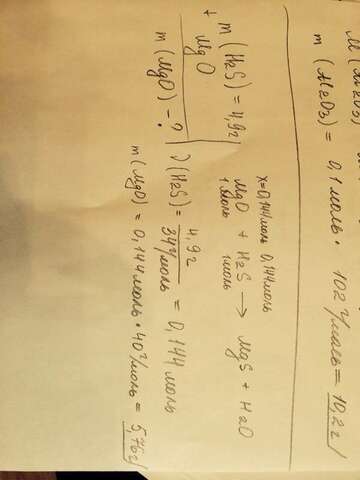 M (Al2O3)
m (Al2O3) = 0,1 моль · 102 г/моль = 10,2 г
m (H2S) = 4,9 г
+ MgO
m (MgO) - ?
x=0,144 моль 0,144 моль
MgO + H2S → MgS + H2O
1 моль 1 моль
ν (H2S) = 4,9 г / 34 г/моль = 0,144 моль
m (MgO) = 0,144 моль · 40 г/моль = 5,76 г